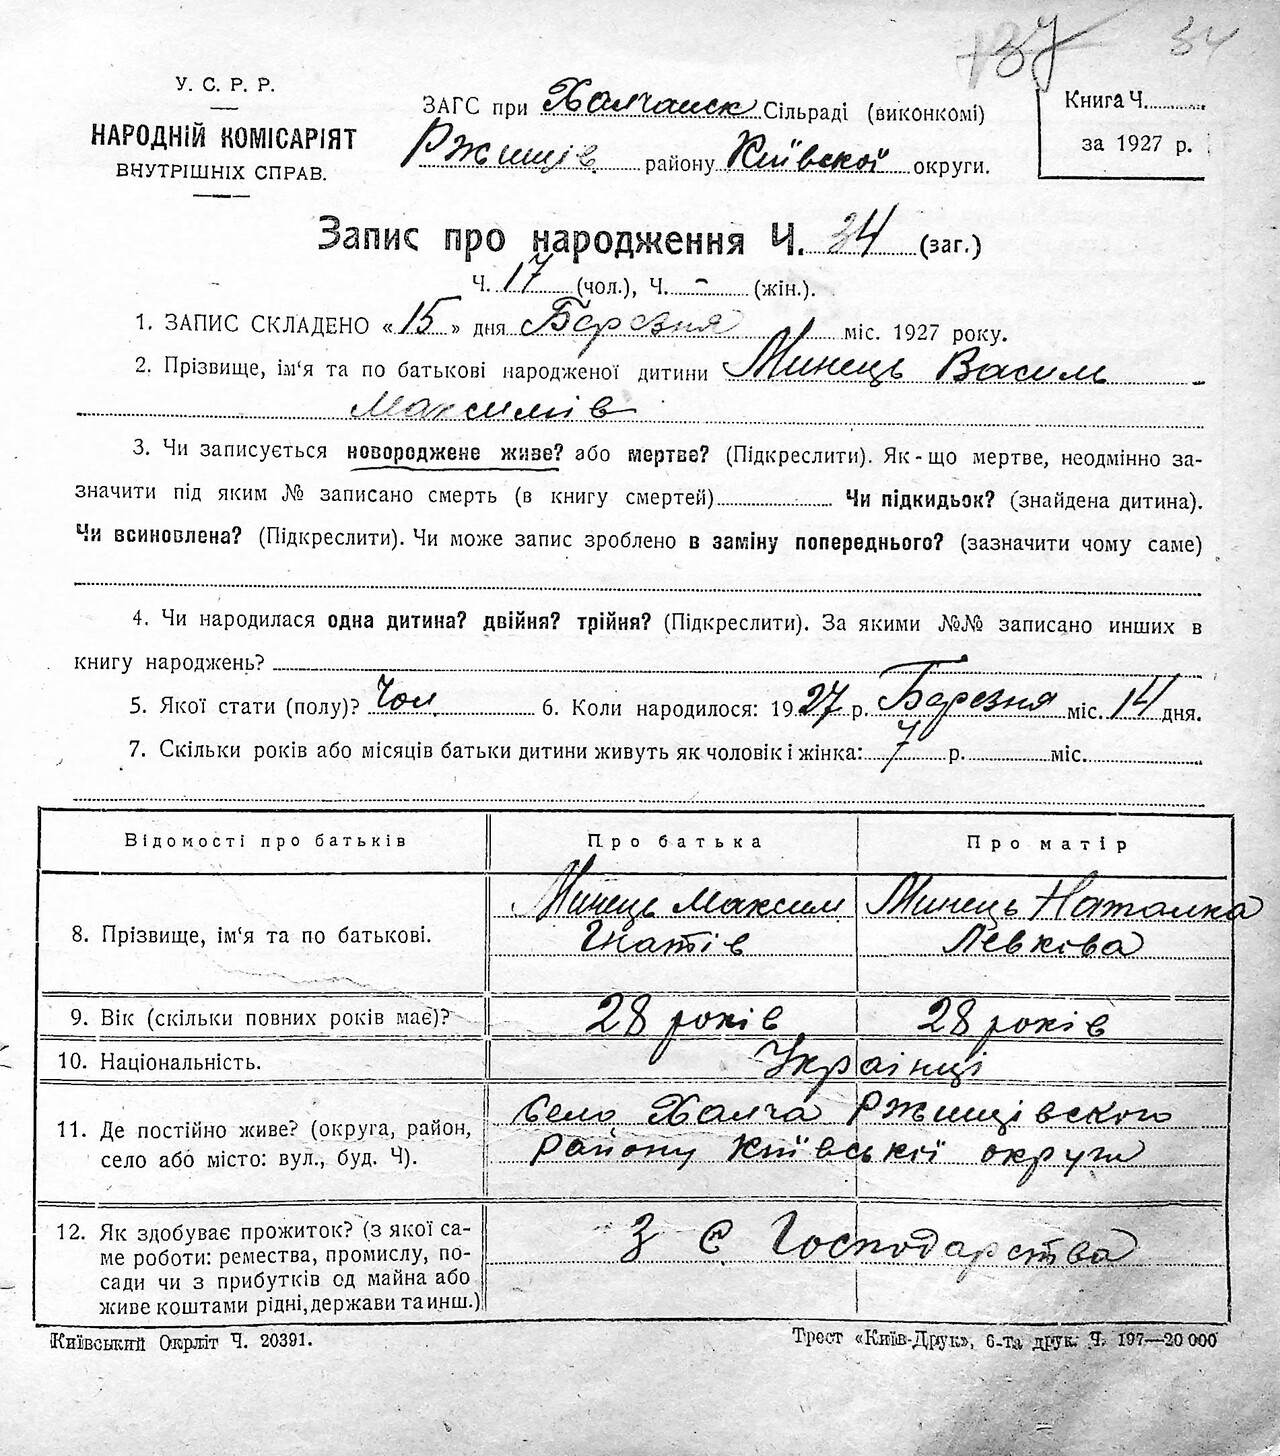 37 34
У. С. Р. Р.
НАРОДНІЙ КОМІСАРІЯТ
ВНУТРІШНІХ СПРАВ.
ЗАГС при Халчанск Сільраді (виконкомі)
Ржищів району Київскої округи.
Книга Ч.
за 1927 р.
Запис про народження Ч. 34 (заг.)
Ч. 17 (чол.), Ч. - (жін.).
1. ЗАПИС СКЛАДЕНО «15» дня Березня міс. 1927 року.
2. Прізвище, ім'я та по батькові народженої дитини Минець Василь
Максимів
3. Чи записується новороджене живе? або мертве? (Підкреслити). Як-що мертве, неодмінно за-
значити під яким № записано смерть (в книгу смертей) Чи підкидьок? (знайдена дитина).
Чи всиновлена? (Підкреслити). Чи може запис зроблено в заміну попереднього? (зазначити чому саме)
4. Чи народилася одна дитина? двійня? трійня? (Підкреслити). За якими №№ записано инших в
книгу народжень?
5. Якої стати (полу)? Чол. 6. Коли народилося: 1927 р. Березня міс. 14 дня.
7. Скільки років або місяців батьки дитини живуть як чоловік і жінка: 7 р. міс.
Відомості про батьків Про батька Про матір
8. Прізвище, ім'я та по батькові. Минець Максим Гнатів Минець Наталка Левкова
9. Вік (скільки повних років має)? 28 років 28 років
10. Національність. Українці
11. Де постійно живе? (округа, район, село або місто: вул., буд. Ч). Село Халча Ржищівского району Київської округи
12. Як здобуває прожиток? (з якої са-
ме роботи: ремества, промислу, по-
сади чи з прибутків од майна або
живе коштами рідні, держави та инш.) З С Господарства
Київський Окрліт Ч. 20391.
Трест «Київ-Друк», 6-та друк. Ч. 197—20 000